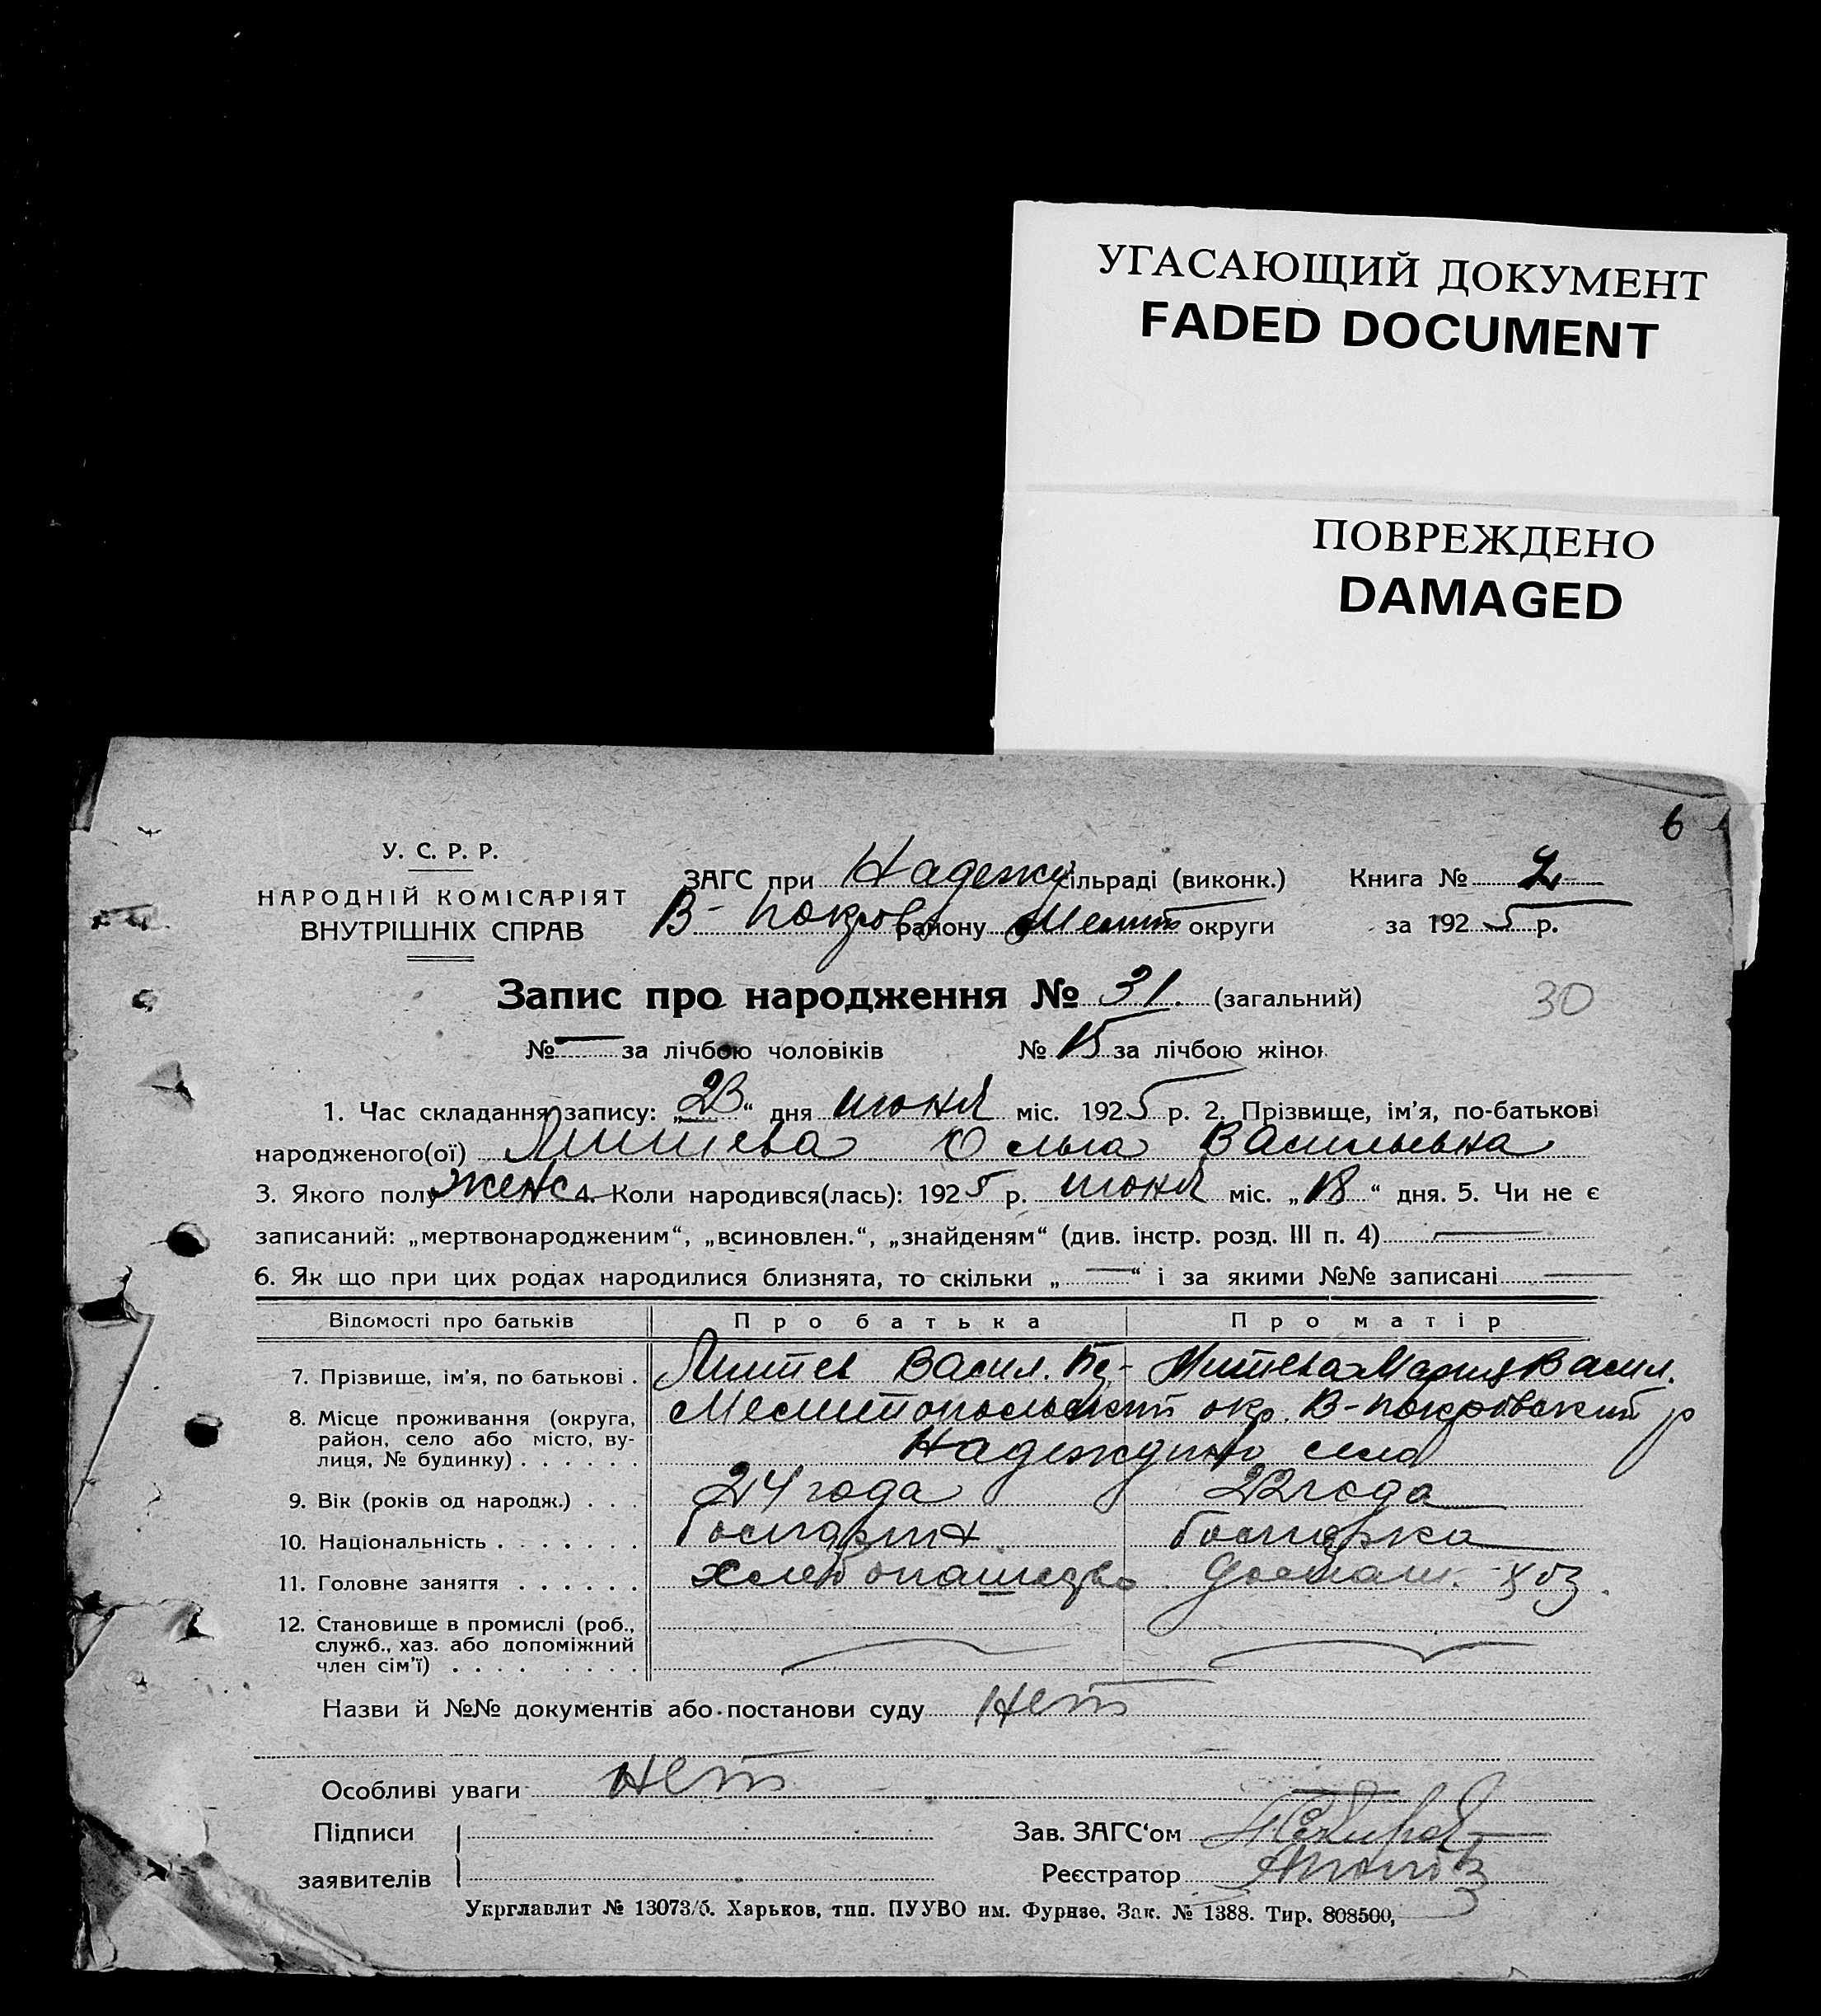 УГАСАЮЩИЙ ДОКУМЕНТ
FADED DOCUMENT
ПОВРЕЖДЕНО
DAMAGED
6
У. С. Р. Р.
НАРОДНІЙ КОМІСАРІЯТ
ВНУТРІШНІХ СПРАВ
ЗАГС при Надежд сільраді (виконк.) Книга № 2
В-Покров району Мелит округи за 1925 р.
Запис про народження № 31. (загальний)
30
№ — за лічбою чоловіків № 15 за лічбою жінок
1. Час складання запису: „23“ дня июня міс. 1925 р. 2. Прізвище, ім'я, по-батькові
народженого(ої) Ольга Васильевна
3. Якого полу женс 4. Коли народився(лась): 1925 р. июня міс. „18“ дня. 5. Чи не є
записаний: „мертвонародженим“, „всиновлен.“, „знайденям“ (див. інстр. розд. III п. 4) —
6. Як що при цих родах народилися близнята, то скільки „—“ і за якими №№ записані —
Відомості про батьків Про батька Про матір
7. Прізвище, ім'я, по батькові . Васил. Мария Васил.
8. Місце проживання (округа, Мелитопольский окр. В-Покровский р
район, село або місто, ву-
лиця, № будинку) . . . . . . Надеждино село
9. Вік (років од народж.) . . . 24 года 22 года
10. Національність . . . . . . .
11. Головне заняття . . . . . . хлебопашество домаш. хоз.
12. Становище в промислі (роб.,
служб., хаз. або допоміжний
член сім'ї) . . . . . . . .
Назви й №№ документів або постанови суду Нет
Особливі уваги Нет
Підписи
заявителів
Зав. ЗАГС'ом
Реєстратор
Укрглавлит № 13073/б. Харьков, тип. ПУУВО им. Фурнзе. Зак. № 1388. Тир. 808500,